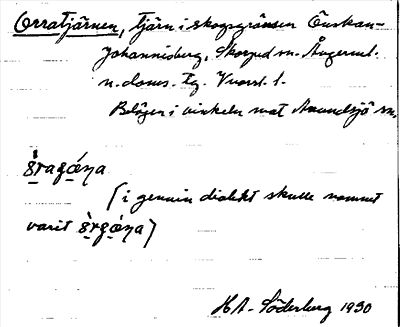 Orratjärnen, tjärn i skogsgränsen Önskan-
Johannisberg, Skorped sn. Ångerml.
n. doms. Tg. Vuorst. 1.
Belägen i vinkeln mot Anundsjö sn.
(i genuin dialekt skulle namnet
varit
H A. Söderberg 1930